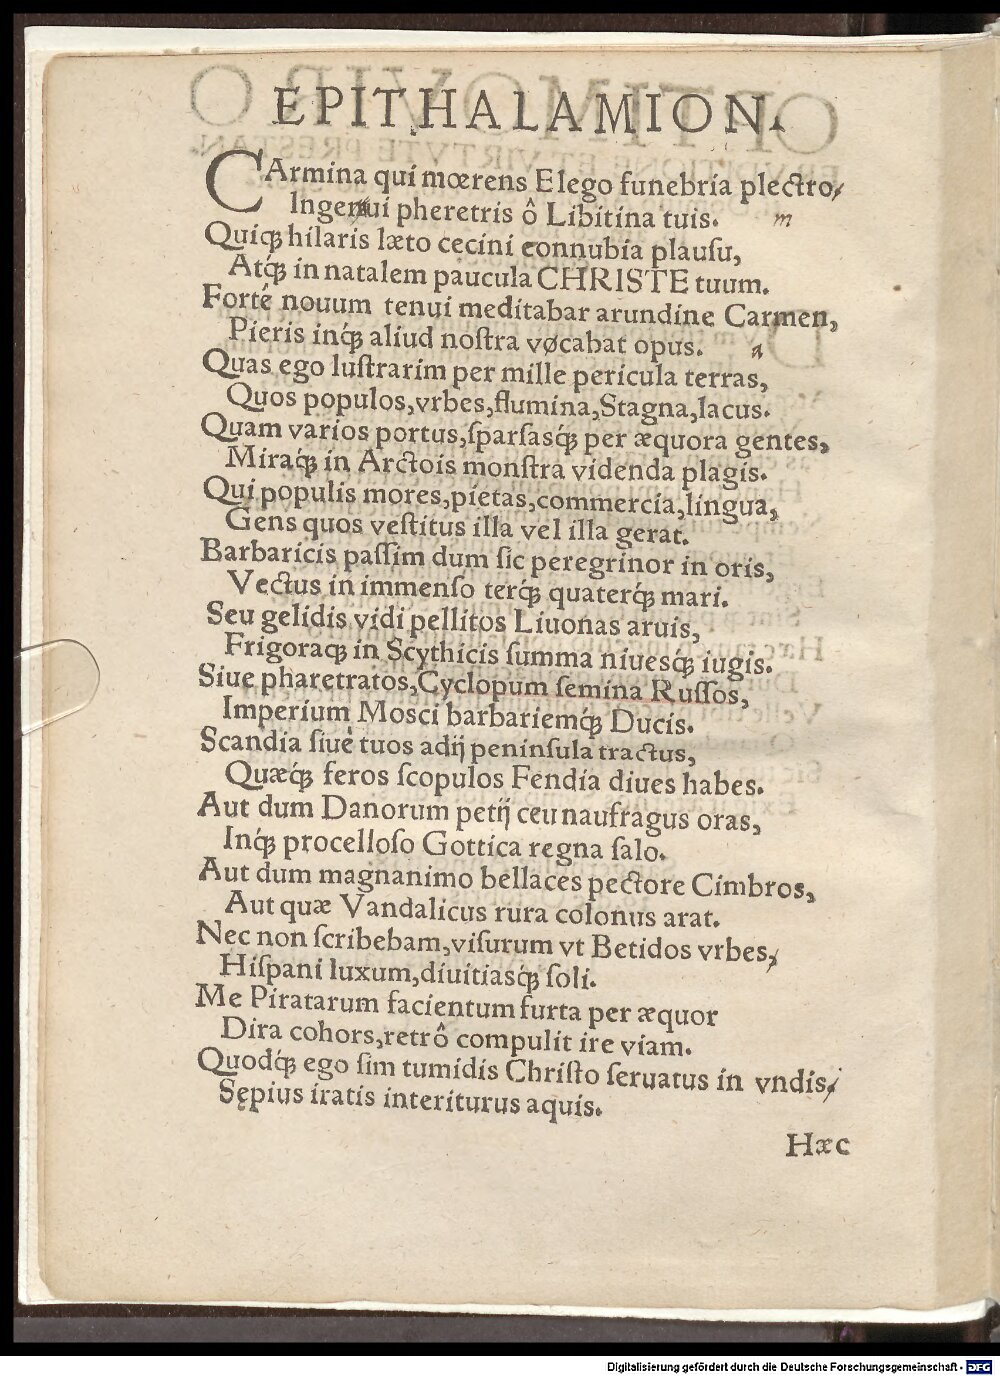 EPITHALAMION.
CArmina qui mœrens Elego funebria plectro,
Ingenui pheretris ô Libitina tuis. m
Quiq́ꝫ hilaris læto cecini connubia plausu,
Atq́ꝫ in natalem paucula CHRISTE tuum.
Forté nouum tenui meditabar arundine Carmen,
Pieris inq́ꝫ aliud nostra vocabat opus. a
Quas ego lustrarim per mille pericula terras,
Quos populos,vrbes,flumina,Stagna,lacus.
Quam varios portus,sparsasq́ꝫ per æquora gentes,
Miraq́ꝫ in Arctois monstra videnda plagis.
Qui populis mores,pietas,commercia,lingua,
Gens quos vestitus illa vel illa gerat.
Barbaricis passim dum sic peregrinor in oris,
Vectus in immenso terq́ꝫ quaterq́ꝫ mari.
Seu gelidis vidi pellitos Liuonas aruis,
Frigoraq́ꝫ in Scythicis summa niuesq́ꝫ iugis.
Siue pharetratos,Cyclopum semina Russos,
Imperium Mosci barbariemq́ꝫ Ducis.
Scandia siuè tuos adij peninsula tractus,
Quæq́ꝫ feros scopulos Fendia diues habes.
Aut dum Danorum petij ceu naufragus oras,
Inq́ꝫ procelloso Gottica regna salo.
Aut dum magnanimo bellaces pectore Cimbros,
Aut quæ Vandalicus rura colonus arat.
Nec non scribebam,visurum vt Betidos vrbes,
Hispani luxum,diuitiasq́ꝫ soli.
Me Piratarum facientum furta per æquor
Dira cohors,retrô compulit ire viam.
Quodq́ꝫ ego sim tumidis Christo seruatus in vndis,
Sępius iratis interiturus aquis.
Hæc
Digitalisierung gefördert durch die Deutsche Forschungsgemeinschaft - DFG